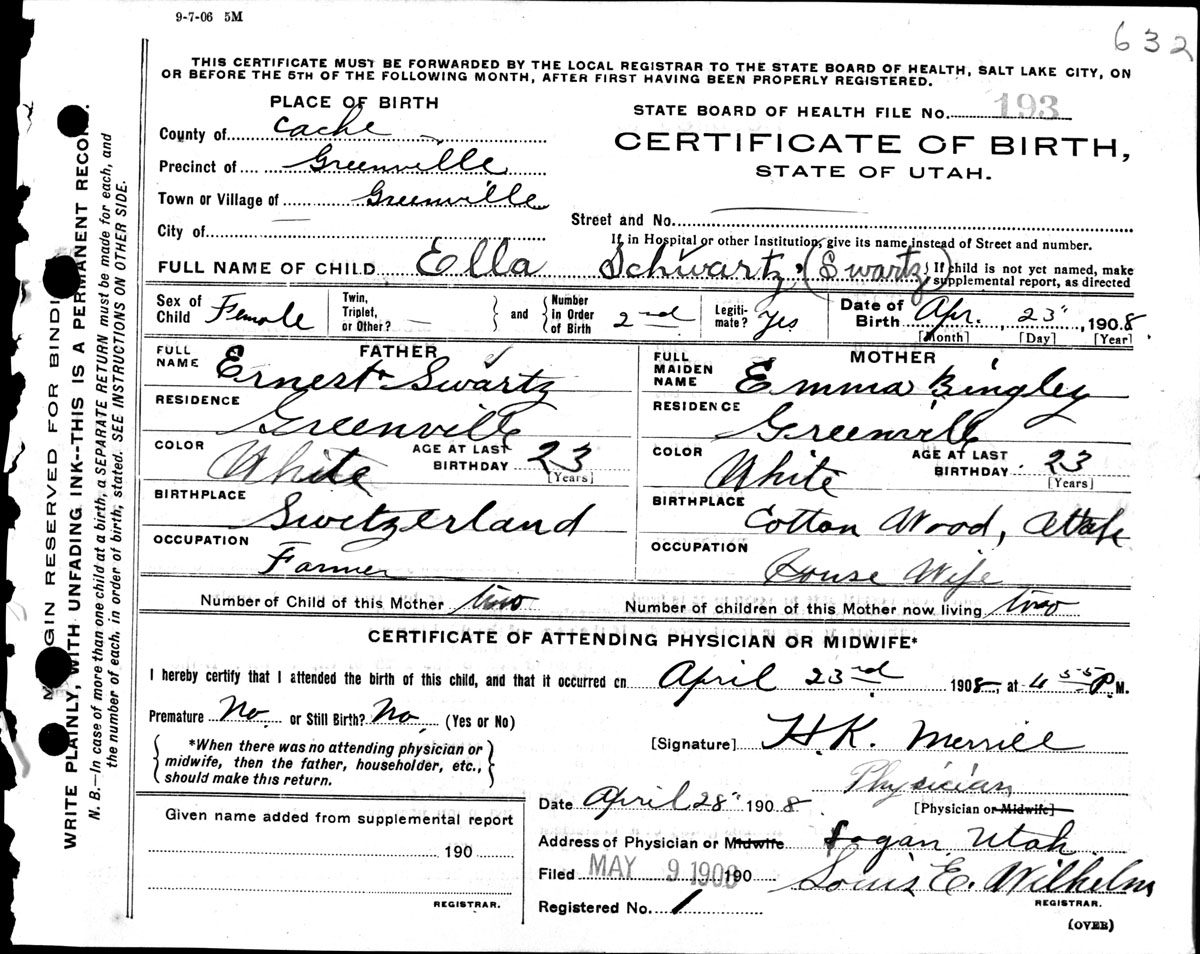 9-7-06 5M
632
THIS CERTIFICATE MUST BE FORWARDED BY THE LOCAL REGISTRAR TO THE STATE BOARD OF HEALTH, SALT LAKE CITY, ON
OR BEFORE THE 5TH OF THE FOLLOWING MONTH, AFTER FIRST HAVING BEEN PROPERLY REGISTERED.
PLACE OF BIRTH
STATE BOARD OF HEALTH FILE No. 193
County of Cache
CERTIFICATE OF BIRTH,
Precinct of Greenville
STATE OF UTAH.
Town or Village of Greenville
Street and No.
City of
If in Hospital or other Institution, give its name instead of Street and number.
FULL NAME OF CHILD Ella Schwartz, (Swartz)
{If child is not yet named, make
supplemental report, as directed
Sex of Child Female
Twin, Triplet, or Other? —
and
Number in Order of Birth 2nd
Legiti-mate? Yes
Date of Birth Apr. 23", 1908
[Month] [Day] [Year]
FATHER
FULL NAME Ernest Swartz
RESIDENCE Greenville
COLOR White
AGE AT LAST BIRTHDAY 23
[Years]
BIRTHPLACE Switzerland
OCCUPATION Farmer
MOTHER
FULL MAIDEN NAME Emma Bingley
RESIDENCE Greenville
COLOR White
AGE AT LAST BIRTHDAY 23
[Years]
BIRTHPLACE Cotton Wood, Utah
OCCUPATION House Wife
Number of Child of this Mother two
Number of children of this Mother now living two
CERTIFICATE OF ATTENDING PHYSICIAN OR MIDWIFE*
I hereby certify that I attended the birth of this child, and that it occurred on April 23rd 1908, at 4 55 P.M.
Premature No. or Still Birth? No. (Yes or No)
*When there was no attending physician or
midwife, then the father, householder, etc.,
should make this return.
[Signature] H. K. Merrill
Physician
[Physician or Midwife]
Date April 28" 1908
Address of Physician or Midwife Logan, Utah
Filed MAY 9 1908 190
Louis E. Wilhelm
REGISTRAR.
Registered No. 1
(OVER)
Given name added from supplemental report
190
REGISTRAR.
MARGIN RESERVED FOR BINDING
WRITE PLAINLY, WITH UNFADING INK--THIS IS A PERMANENT RECORD.
N. B.—In case of more than one child at a birth, a SEPARATE RETURN must be made for each, and
the number of each, in order of birth, stated. SEE INSTRUCTIONS ON OTHER SIDE.